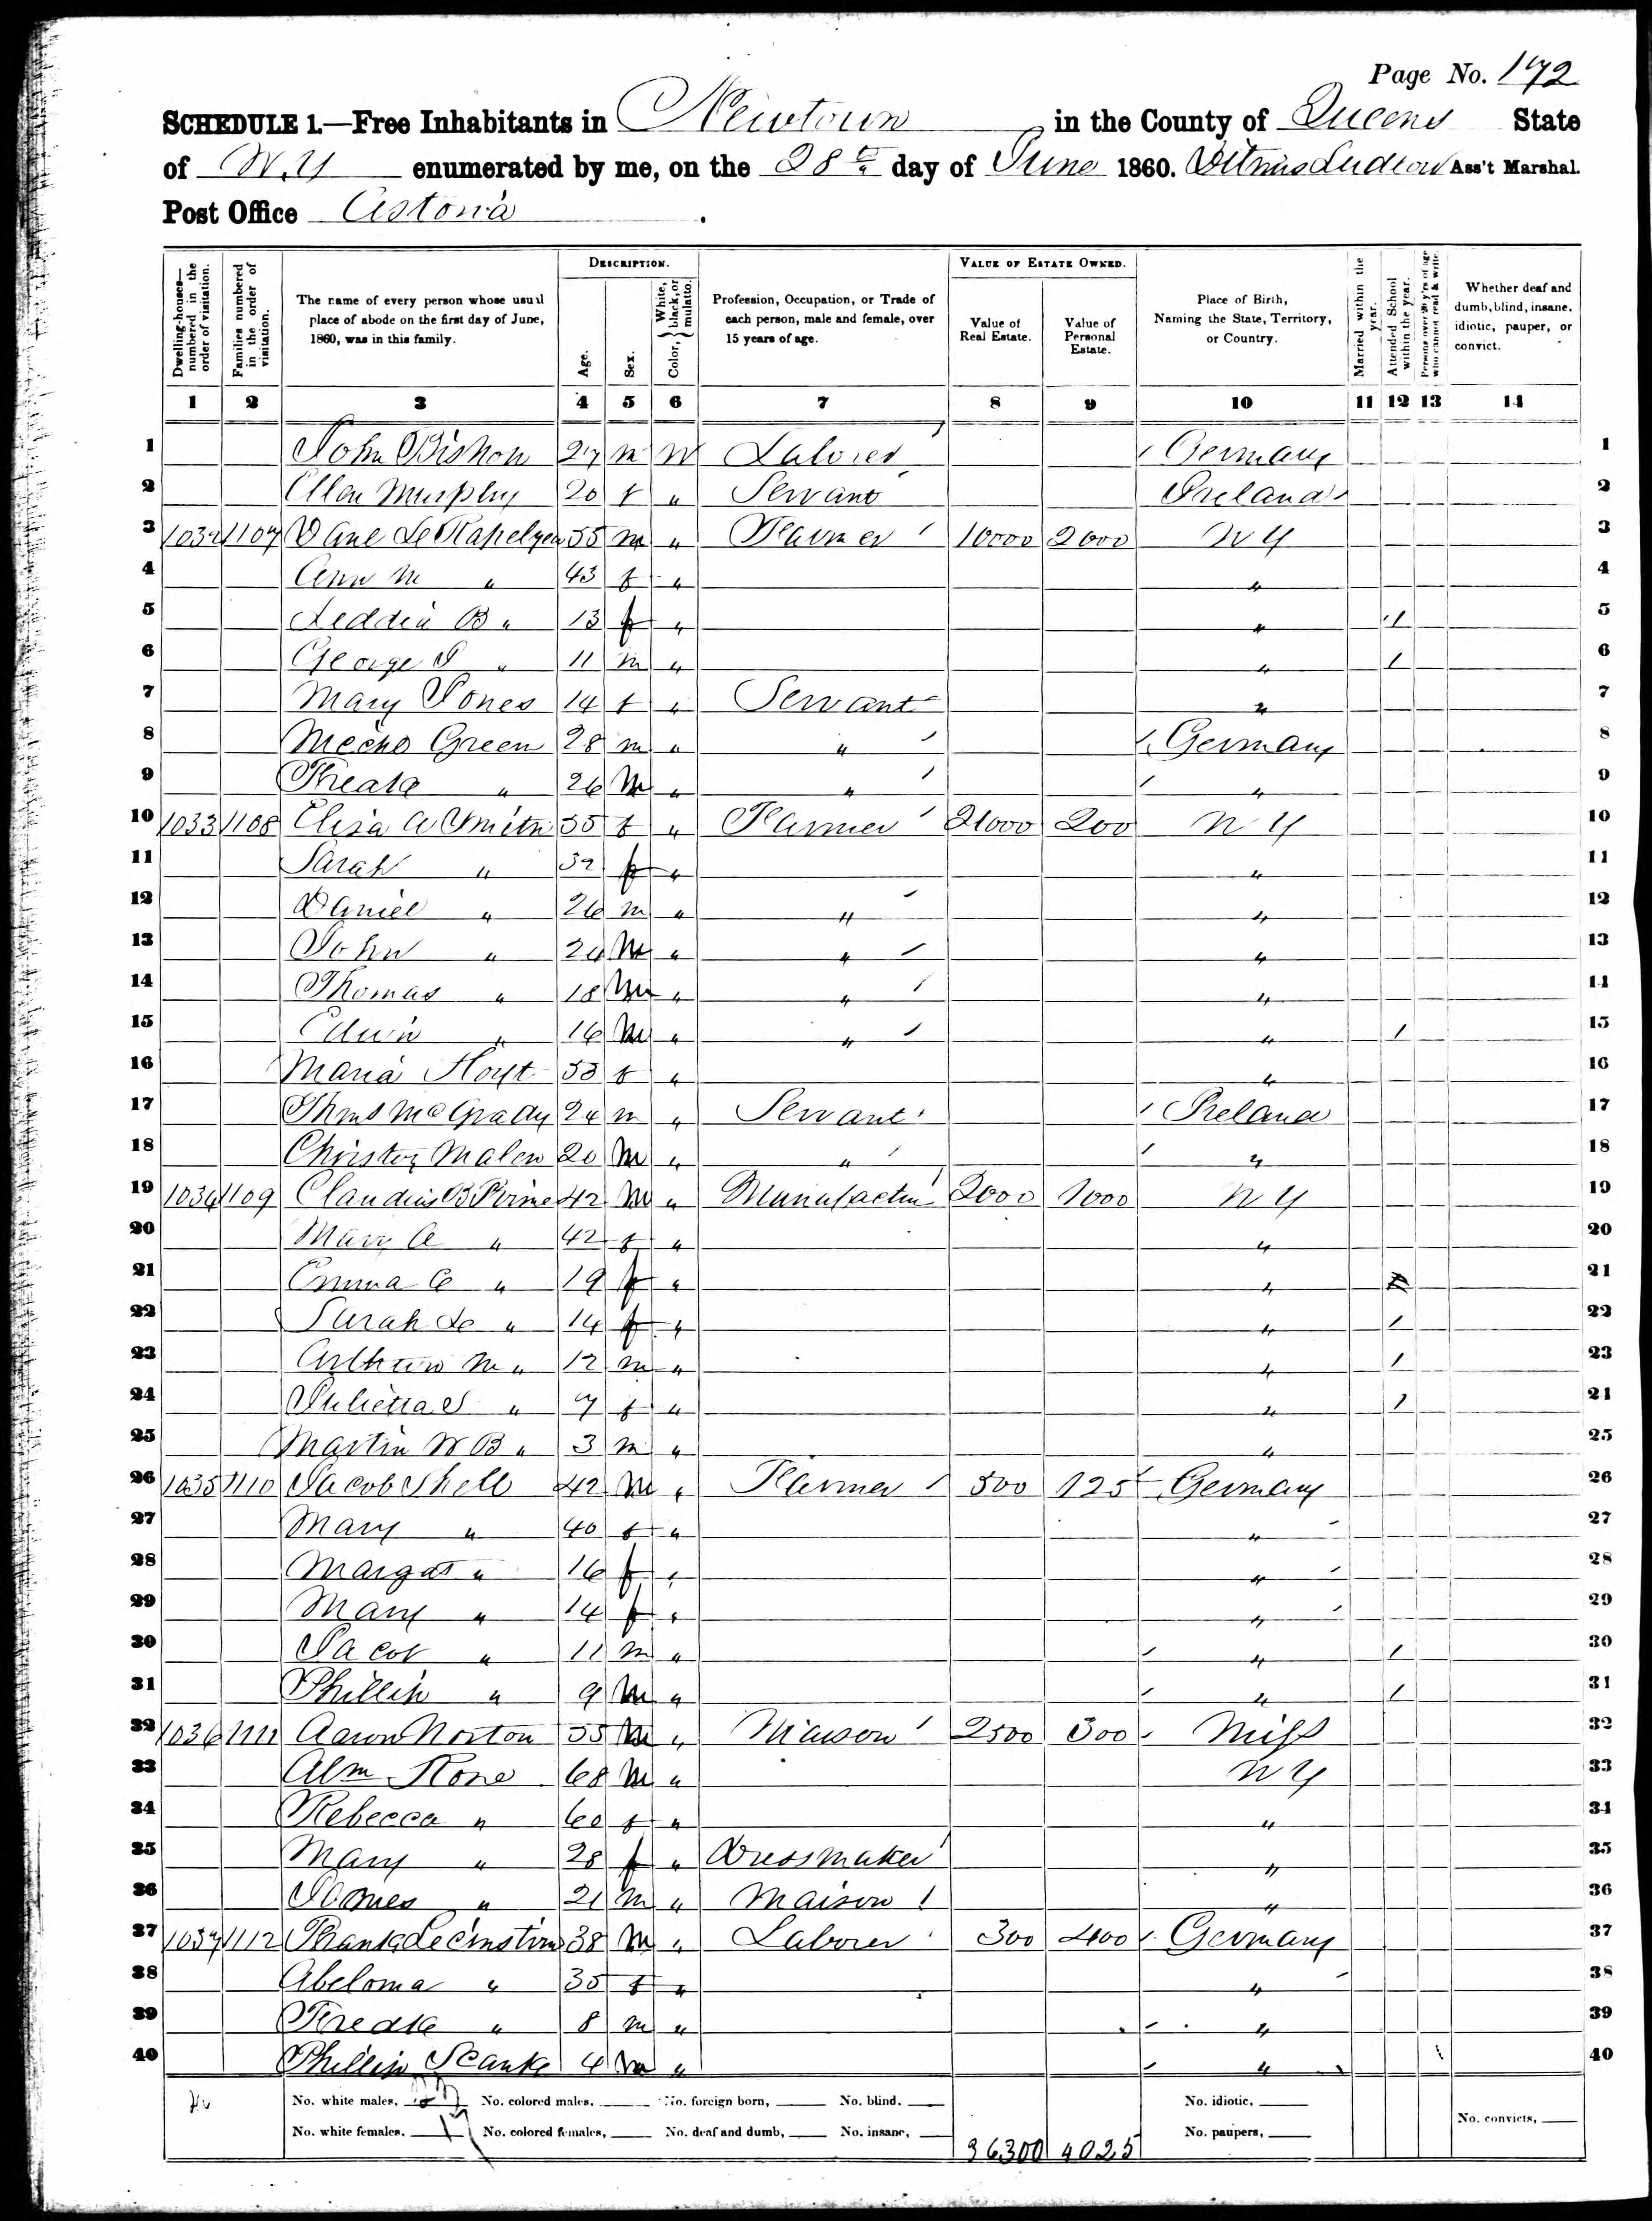 Page No. 172
SCHEDULE 1.—Free Inhabitants in Newtown in the County of Queens State
of N.Y enumerated by me, on the 28th day of June 1860. Ditmus Ludlow Ass't Marshal.
Post Office Astoria
Dwelling-houses—numbered in the order of visitation.
Families numbered in the order of visitation.
The name of every person whose usual place of abode on the first day of June, 1860, was in this family.
DESCRIPTION.
Age.
Sex.
Color, { White, black, or mulatto.
Profession, Occupation, or Trade of each person, male and female, over 15 years of age.
VALUE OF ESTATE OWNED.
Value of Real Estate.
Value of Personal Estate.
Place of Birth, Naming the State, Territory, or Country.
Married within the year.
Attended School within the year.
Persons over 20 y'rs of age who cannot read & write.
Whether deaf and dumb, blind, insane, idiotic, pauper, or convict.
1 2 3 4 5 6 7 8 9 10 11 12 13 14
1 John Bishop 27 m W Laborer Germany 1
2 Ellen Murphy 20 f " Servant Ireland 2
3 1032 1107 Dane Le Rapelyea 55 m " Farmer 10000 2000 N Y 3
4 Ann M " 43 f " " 4
5 Leddia B " 13 f " " / 5
6 George " 11 m " " / 6
7 Mary Jones 14 f " Servant " 7
8 Green 28 m " " Germany 8
9 " 26 m " " " 9
10 1033 1108 Eliza A Smith 55 f " Farmer 21000 200 N Y 10
11 Sarah " 32 f " " 11
12 Daniel " 26 m " " " 12
13 John " 24 m " " " 13
14 Thomas " 18 m " " " 14
15 Edwin " 16 m " " " / 15
16 Maria Hoyt 53 f " " 16
17 Thms McGrady 24 m " Servant Ireland 17
18 Malen 20 m " " " 18
19 1034 1109 Claudius B Prime 42 m " Manufactur 2000 1000 N Y 19
20 Mary A " 42 f " " 20
21 Emma C " 19 f " " 21
22 Sarah Le " 14 f " " / 22
23 M " 12 m " " / 23
24 Julietta S " 7 f " " / 24
25 Martin W B " 3 m " " 25
26 1035 1110 Jacob Shell 42 m " Farmer 500 125 Germany 26
27 Mary " 40 f " " 27
28 Margat " 16 f " " 28
29 Mary " 14 f " " 29
30 Jacob " 11 m " " / 30
31 Phillip " 9 m " " / 31
32 1036 1111 Aaron Norton 55 m " Maison 2500 300 Miss 32
33 Abm Rone 68 m " N Y 33
34 Rebecca " 60 f " " 34
35 Mary " 28 f " Dressmaker " 35
36 James " 21 m " Maison " 36
37 1037 1112 38 m " Laborer 300 400 Germany 37
38 Abeloma " 35 f " " 38
39 " 8 m " " 39
40 Phillip 4 m " " 40
40
No. white males, No. colored males. No. foreign born, No. blind. No. idiotic,
No. white females. 17 No. colored females, No. deaf and dumb, No. insane, No. paupers, No. convicts,
36300 4025